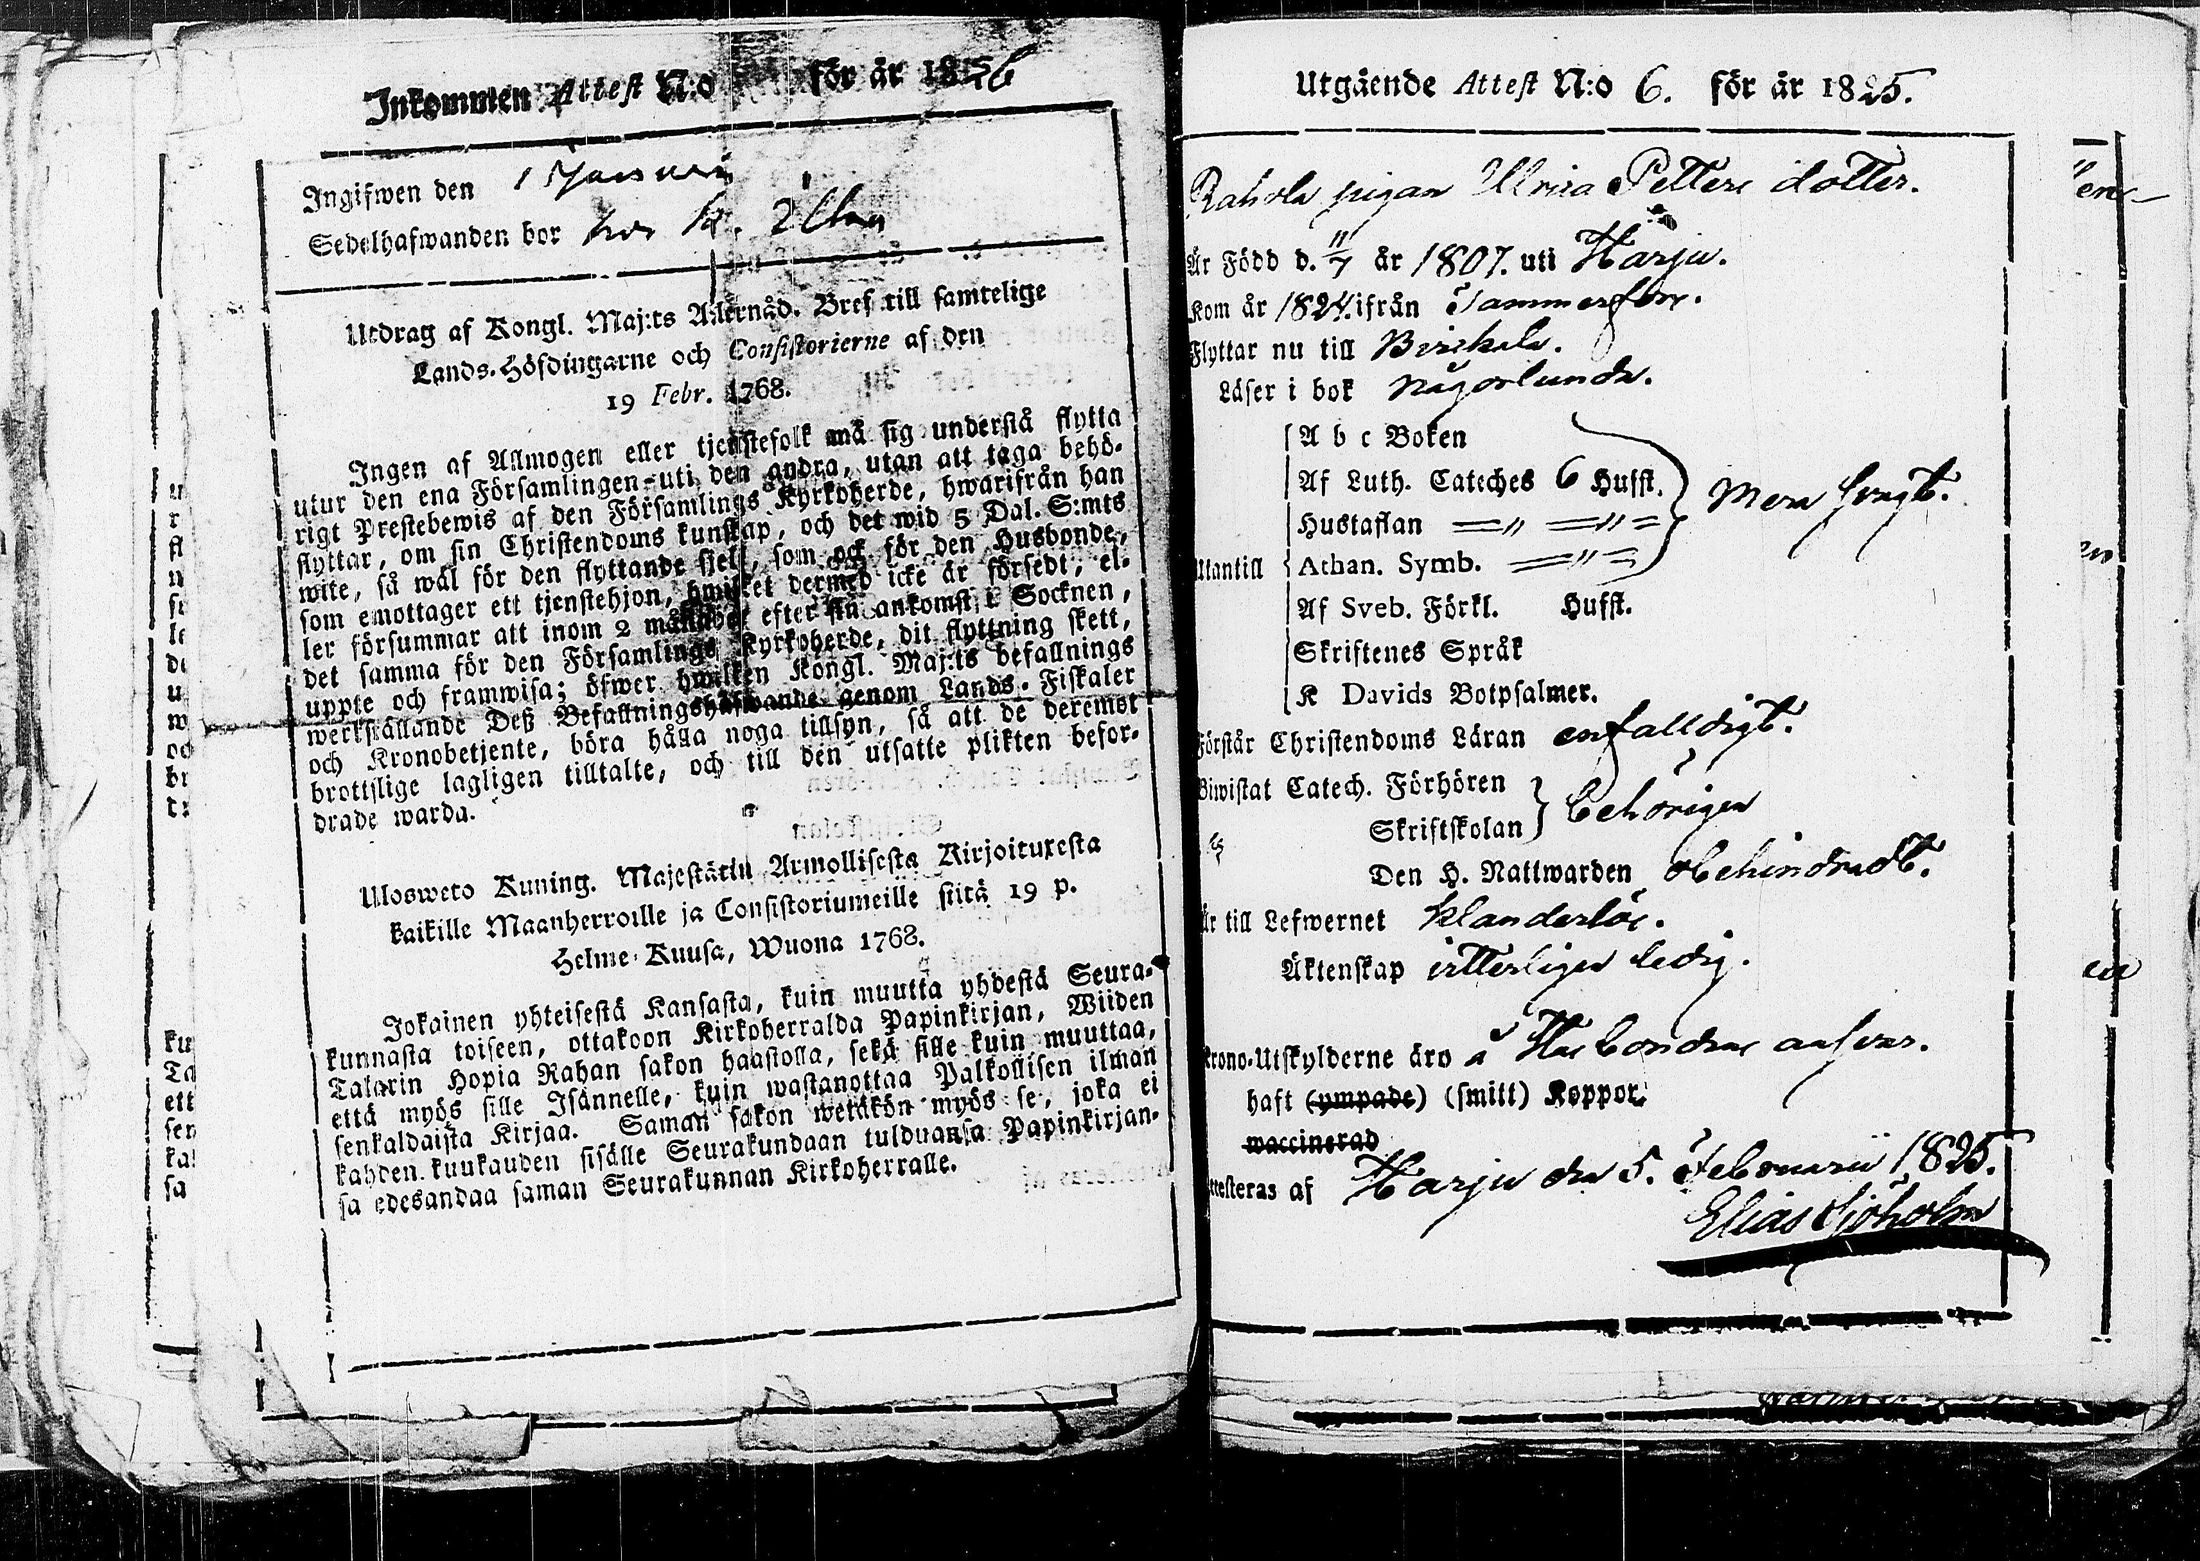 Inkommen Attest N:o för år 1826
Ingifwen den 1 Januari
Sedelhafwanden bor hos
Utdrag af Kongl. Maj:ts Allernåd. Bref till samtelige
Lands-Höfdingarne och Consistorierne af den
19 Febr. 1768.
Ingen af Allmogen eller tjenstefolk må sig understå flytta
utur den ena Församlingen uti den andra, utan att taga behö-
rigt Prestebewis af den Församlings Kyrkoherde, hwarifrån han
flyttar, om sin Christendoms kunskap, och det wid 5 Dal. S:mts
wite, så wäl för den flyttande sielf, som ock för den Husbonde,
som emottager ett tjenstehjon, hwilket dermed icke är försedt, el-
ler försummar att inom 2 månader efter sin ankomst i Socknen,
det samma för den Församlings Kyrkoherde, dit flyttning skett,
uppte och framwisa; öfwer hwilken Kongl. Maj:ts befallnings
werkställande Deß Befallningshafwande genom Lands-Fiskaler
och Kronobetjente, böra hålla noga tillsyn, så att de deremot
brottslige lagligen tilltalte, och till den utsatte plikten befor-
drade warda.
Ulosweto Kuning. Majestätin Armollisesta Kirjoituxesta
kaikille Maanherroille ja Consistoriumeille siitä 19 p.
Helme-Kuusa, Wuona 1768.
Jokainen yhteisestä Kansasta, kuin muutta yhdestä Seura-
kunnasta toiseen, ottakoon Kirkoherralda Papinkirjan, Wiiden
Talarin Hopia Rahan sakon haastolla, sekä sille kuin muuttaa,
että myös sille Isännelle, kuin wastanottaa Palkollisen ilman
senkaldaista Kirjaa. Saman sakon wetäkön myös se, joka ei
kahden kuukauden sisälle Seurakundaan tulduansa Papinkirjan-
sa edesandaa saman Seurakunnan Kirkoherralle.
Utgående Attest N:o 6. för år 1825.
Rahola pigan Ulrica Petters dotter.
Är Född d. 11/7 år 1807. uti Harju.
Kom år 1824. ifrån Tammerfors.
Flyttar nu till Birckala.
Läser i bok någorlunda.
A b c Boken
Af Luth. Cateches 6 Hufst.
Hustaflan =〃 =〃= Mera svagt.
Utantill Athan. Symb. =〃=
Af Sveb. Förkl. Hufst.
Skriftenes Språk
K Davids Botpsalmer.
Förstår Christendoms Läran enfalldigt.
Biwistat Catech. Förhören
Skriftskolan behörigen
Den H. Nattwarden obehindradt.
Är till Lefwernet klanderlös.
Äktenskap ytterligen ledig.
Krono-Utskylderne äro å Husbondens ansvar.
haft (ympade) (smitt) Koppor.
waccinerad
Attesteras af Harju den 5. Februarii 1825.
Elias Sjöholm